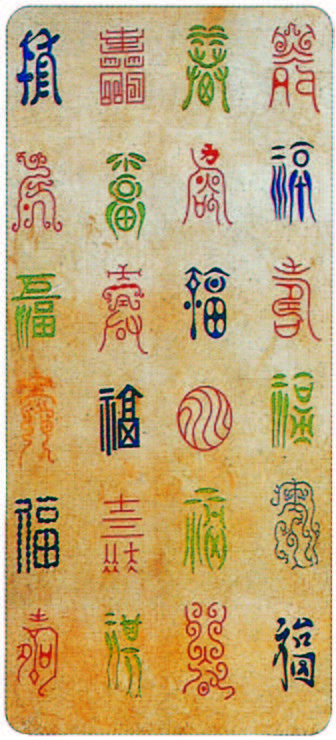 福壽福壽
壽福壽福
福壽福壽
壽福壽福
福壽福壽
壽福壽福